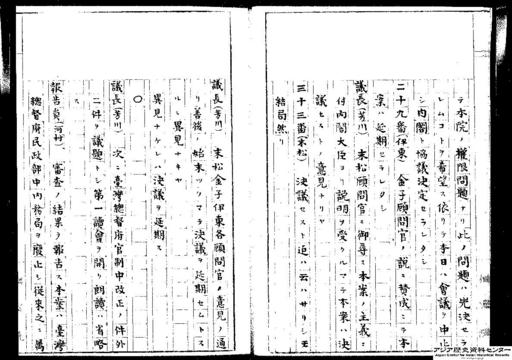 テ本院ノ權限問題ナリ此ノ問題ヲ先決セラ
レムコトヲ希望ス依リテ本日ハ會議ヲ中止
シ内閣ト協議決定セラレタシ
二十九番(伊東) 金子顧問官ノ説ニ賛成ニテ本
案ハ延期セラレタシ
議長(芳川) 末松顧問官ニ御尋ス本案ノ主義ニ
付内閣大臣ヨリ説明ヲ受クルマテ本案ハ決
議セストノ意見ナリヤ
三十三番(末松) 決議セスト迄ハ云ハサリシモ
結局然リ
議長(芳川) 末松金子伊東各顧問官ノ意見ノ通
リ善後ノ始末ヲツクルマテ決議ヲ延期セムトス
ルニ異見ナキヤ
異見ナケレハ決議ヲ延期ス
〇
議長(芳川) 次ハ臺灣總督府官制中改正ノ件外
二件ヲ議題トシ第一讀會ヲ開ク朗讀ハ省略
ス
報告員(河村) 審査ノ結果ヲ報告ス本案ハ臺灣
總督府民政部中内務局ヲ廢止シ從來之ニ屬
アジア歴史資料センター
Japan Center for Asian Historical Records